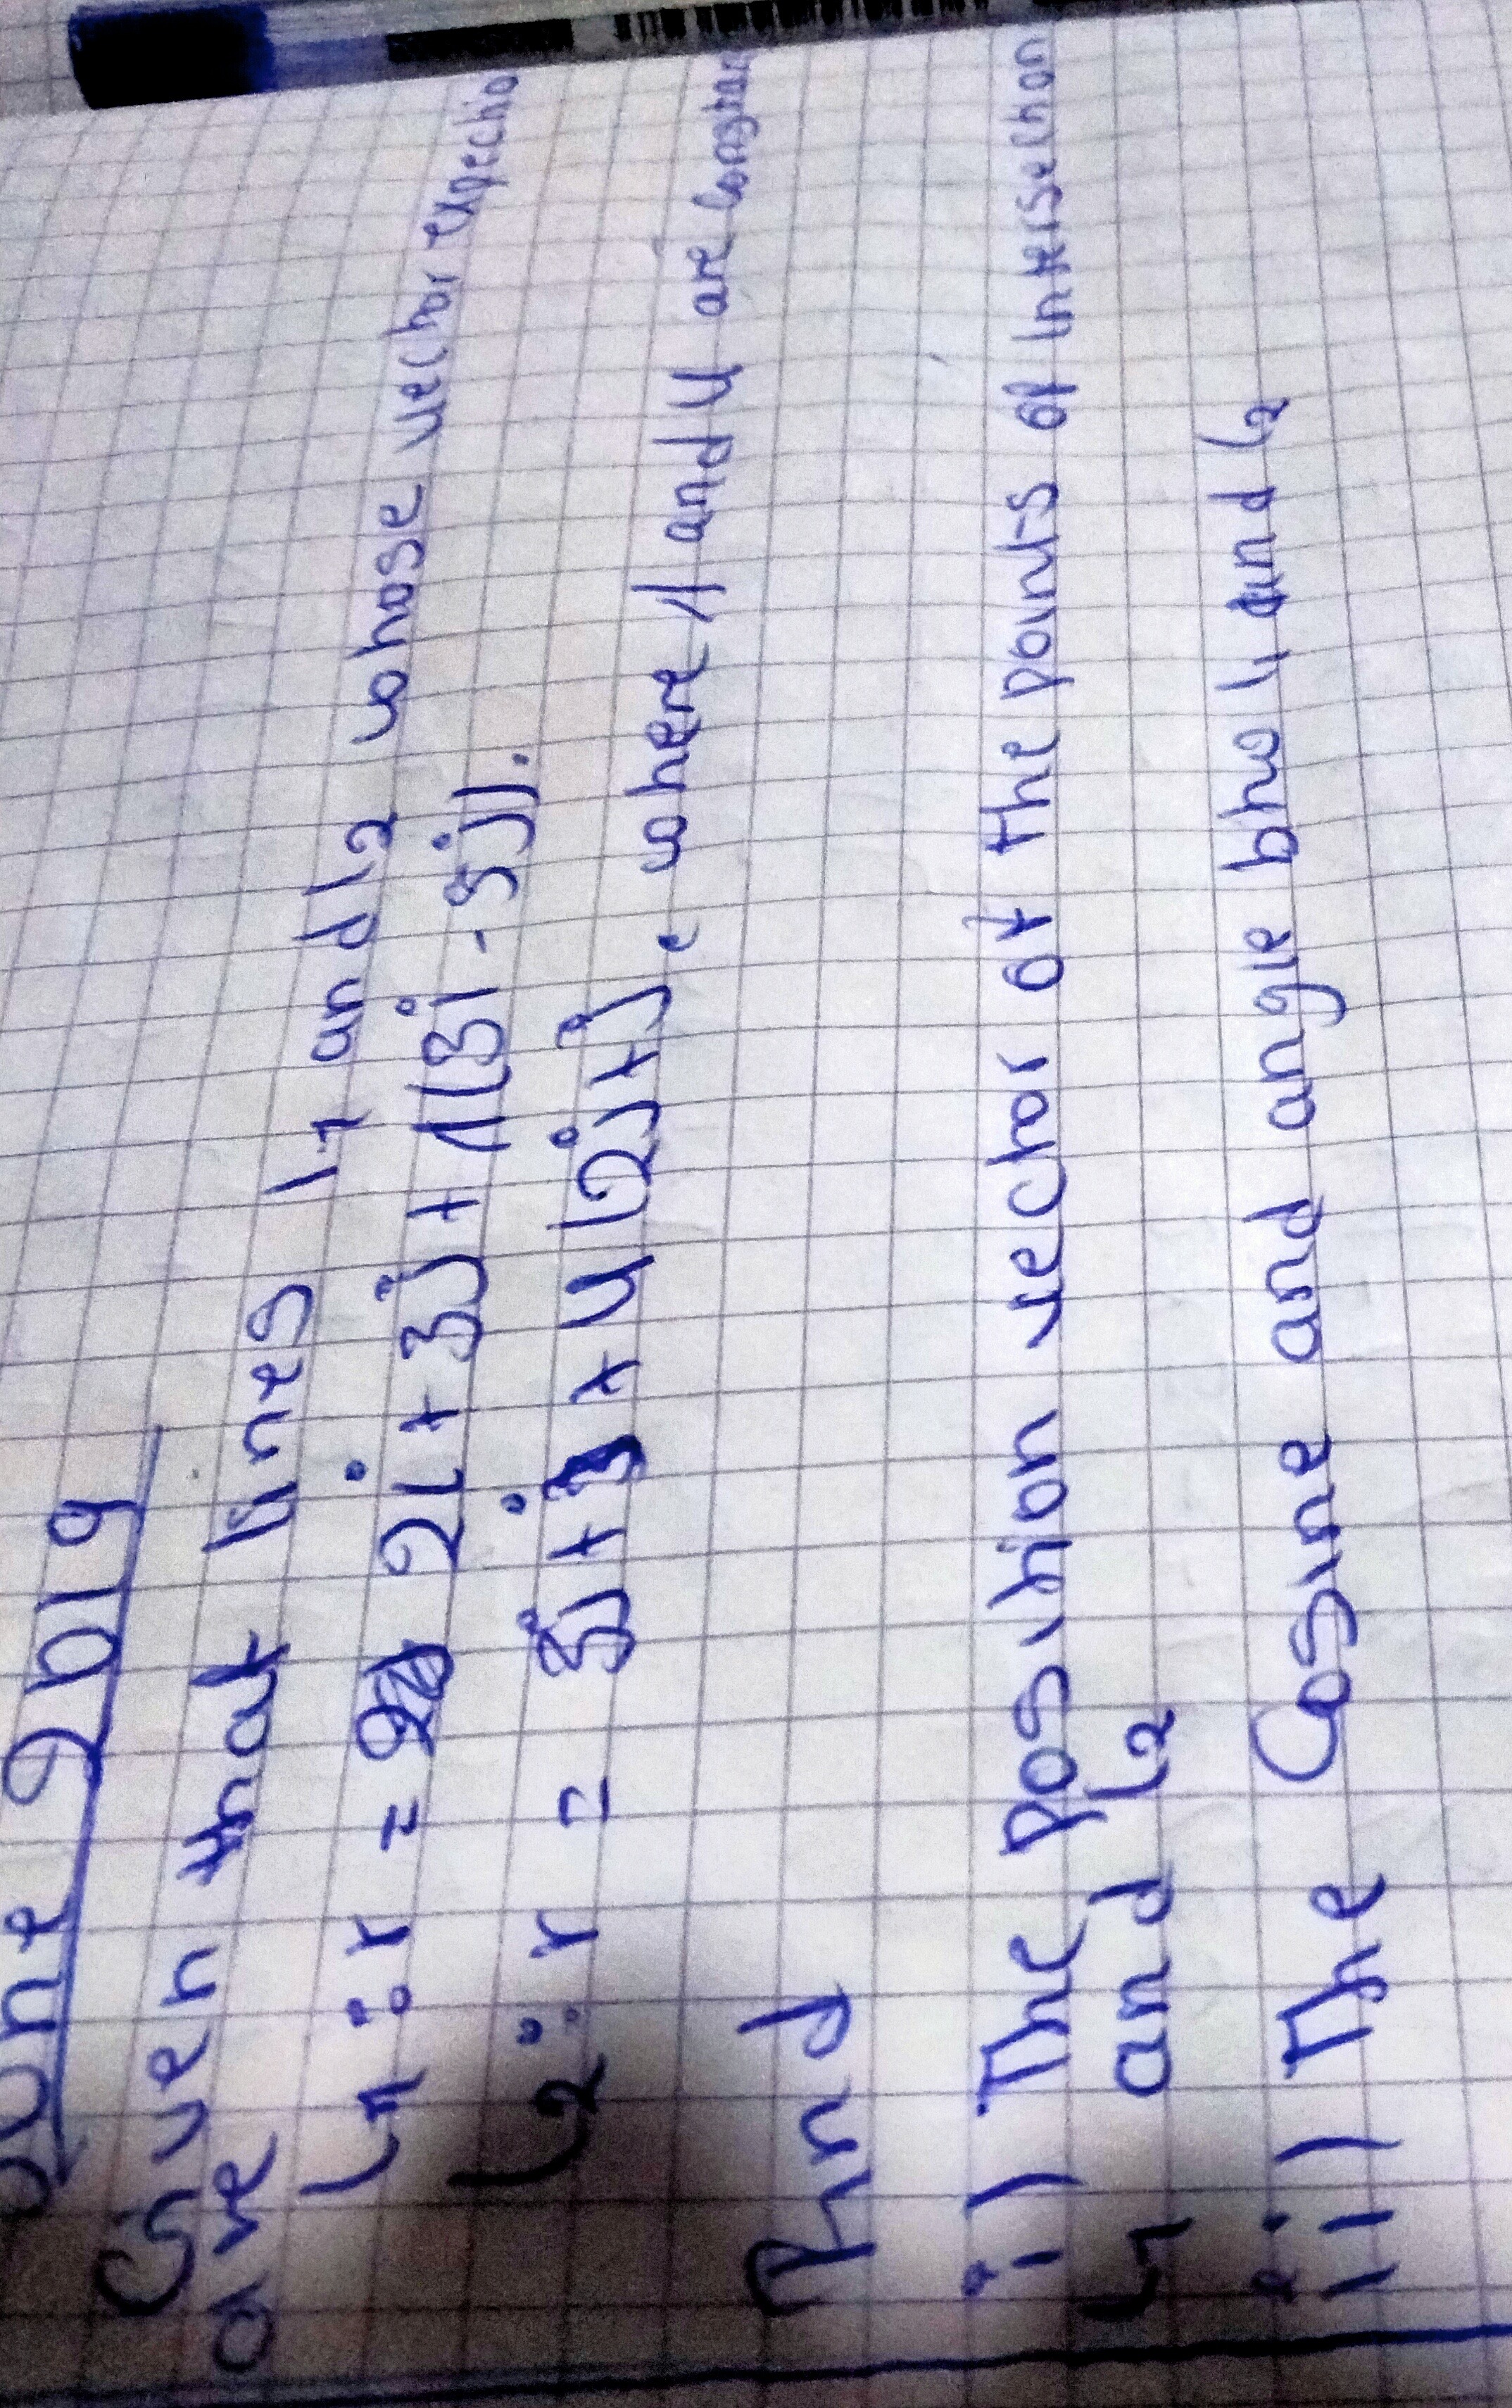 June 2019
Given that lines L1 and L2 whose vector
are
L1: r = 2i + 3j + λ(3i - 5j).
L2: r = 3j + i + μ(2j + j. where λ and μ are
Find
i) The position vector of the points of intersection
L1 and L2
ii) The Cosine and angle btw L1 and L2